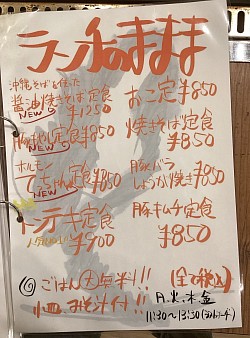 ランチのままま
沖縄そばを使った
醤油焼きそば定食
NEW ¥1250
おこ定¥850
豚 定食¥850
NEW
焼きそば定食
¥850
ホルモン
ちゃん定食¥850
NEW
豚バラ
しょうが焼き¥850
トンテキ定食
¥900
豚キムチ定食
¥850
ごはん大無料!!
小皿、みそ汁付!!
(全て税込)
月、火、木、金
11:30〜13:30(ラストオーダー)